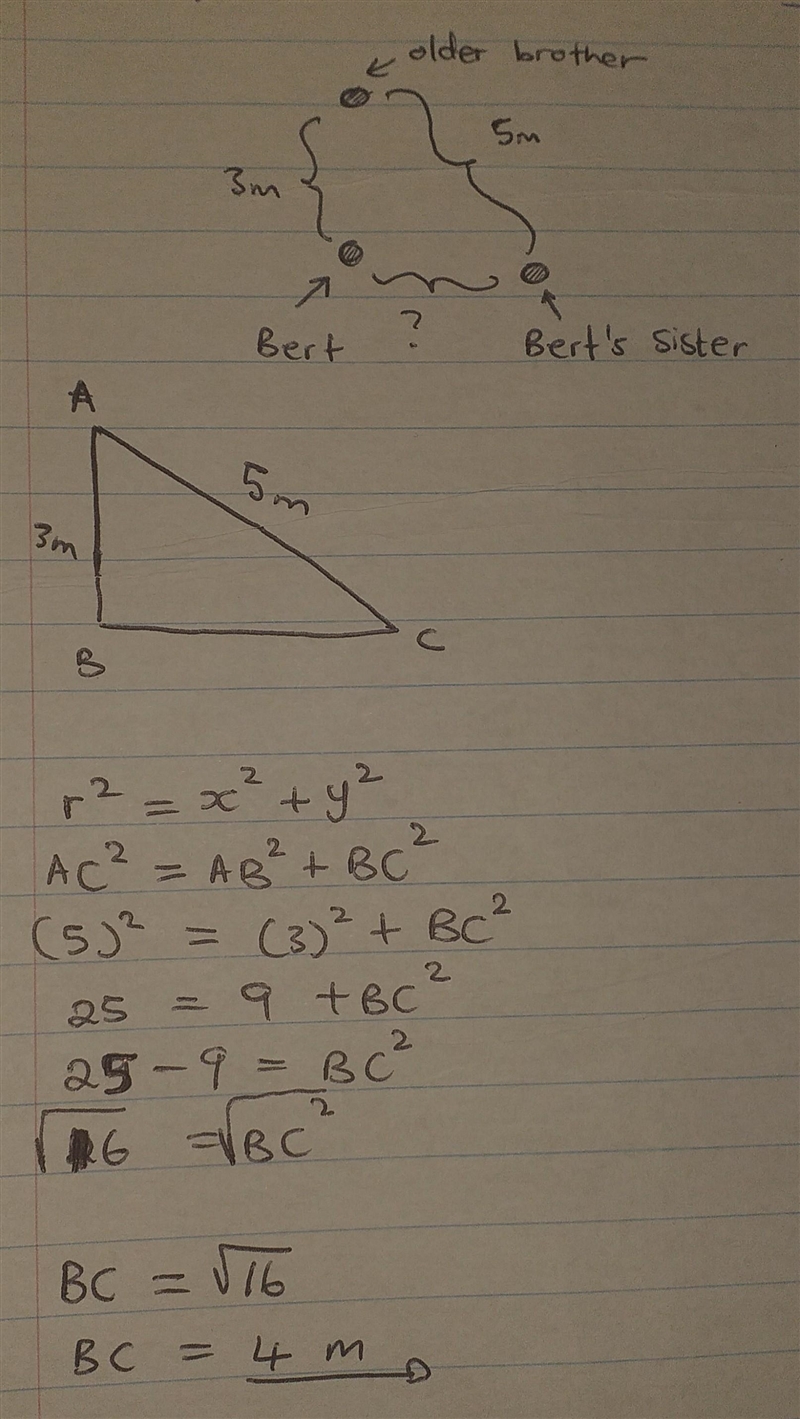 older brother
5m
3m
Bert ? Bert's Sister
A
5m
3m
B C
r² = x² + y²
AC² = AB² + BC²
(5)² = (3)² + BC²
25 = 9 + BC²
25 - 9 = BC²
√16 = √BC²
BC = √16
BC = 4 m